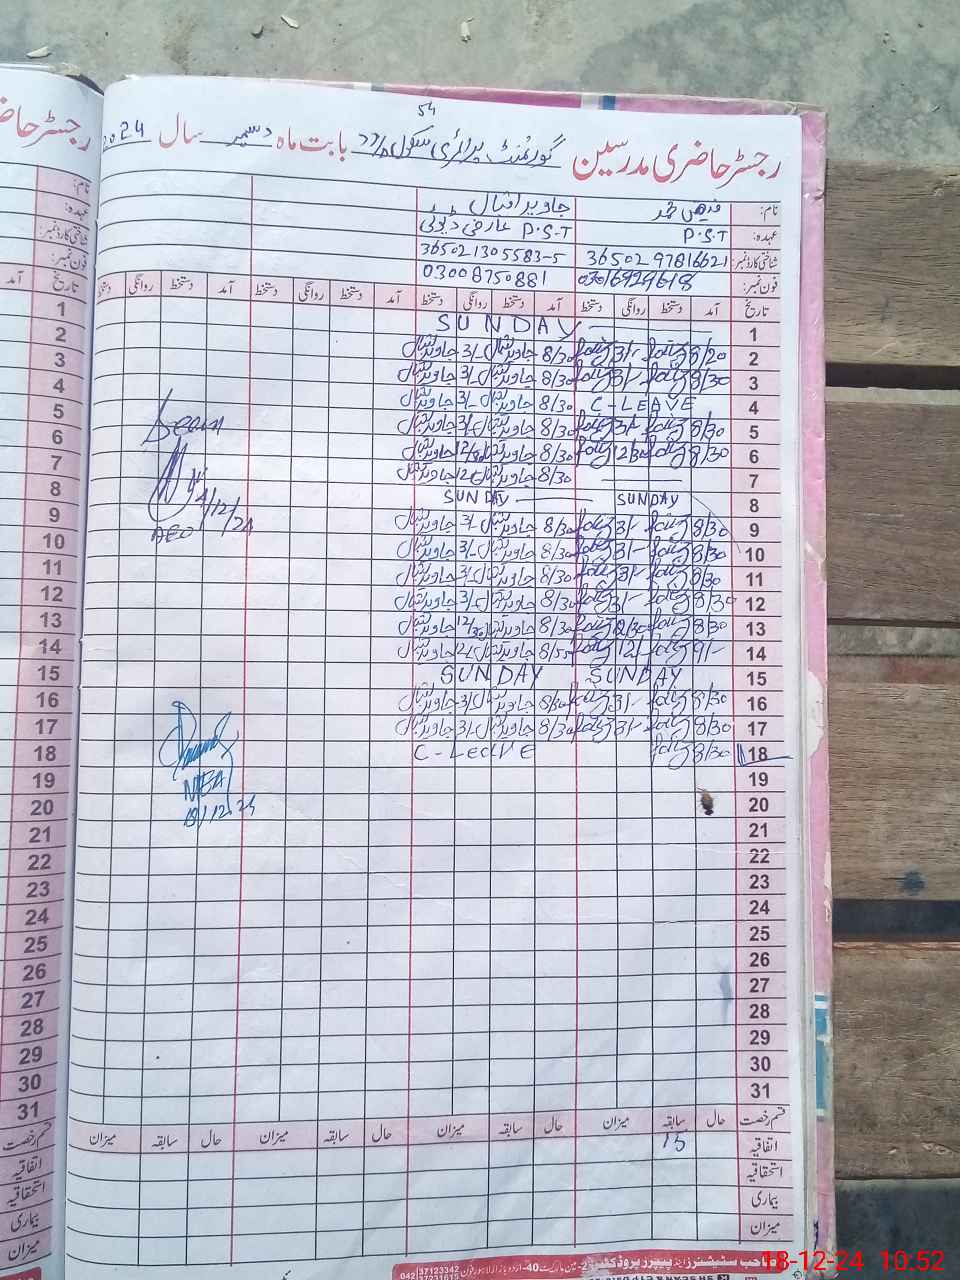 54
رجسٹر حاضری مدرسین گورنمنٹ پرائمری سکول بابت ماہ دسمبر سال 2024
نام: فیض محمد جاوید اقبال
عہدہ: P.S.T P.S.T عارضی ڈیوٹی
شناختی کارڈ نمبر: 3650297816621 365021305583-5
فون نمبر: 03016929618 03008750881
تاریخ آمد دستخط روانگی دستخط آمد دستخط روانگی دستخط آمد دستخط روانگی دستخط آمد دستخط روانگی دستخط
1 SUNDAY
2 8/20 3/- 8/30 جاوید اقبال 3/- جاوید اقبال
3 8/30 3/- 8/30 جاوید اقبال 3/- جاوید اقبال
4 C-LEAVE 8/30 جاوید اقبال 3/- جاوید اقبال
5 8/30 3/- 8/30 جاوید اقبال 3/- جاوید اقبال
6 8/30 12/30 8/30 جاوید اقبال 12/30 جاوید اقبال
7 8/30 جاوید اقبال جاوید اقبال
8 SUNDAY SUNDAY
9 8/30 3/- 8/30 جاوید اقبال 3/- جاوید اقبال
10 8/30 3/- 8/30 جاوید اقبال 3/- جاوید اقبال
11 8/30 3/- 8/30 جاوید اقبال 3/- جاوید اقبال
12 8/30 3/- 8/30 جاوید اقبال 3/- جاوید اقبال
13 8/30 12/30 8/30 جاوید اقبال 12/30 جاوید اقبال
14 9/- 12/- 8/55 جاوید اقبال جاوید اقبال
15 SUNDAY SUNDAY
16 8/30 3/- 8/30 جاوید اقبال 3/- جاوید اقبال
17 8/30 3/- 8/30 جاوید اقبال 3/- جاوید اقبال
18 8/30 C-LEAVE
19
20
21
22
23
24
25
26
27
28
29
30
31
Seen
4/12/24
AEO
MEA
18/12.24
قسم رخصت حال سابقہ میزان حال سابقہ میزان حال سابقہ میزان حال سابقہ میزان
اتفاقیہ 15
استحقاقیہ
بیماری
میزان
042 37123342
37231615
رجسٹر حاضری
نام:
عہدہ:
شناختی کارڈ نمبر:
فون نمبر:
تاریخ آمد
1
2
3
4
5
6
7
8
9
10
11
12
13
14
15
16
17
18
19
20
21
22
23
24
25
26
27
28
29
30
31
قسم رخصت
اتفاقیہ
استحقاقیہ
بیماری
میزان
18-12-24 10:52